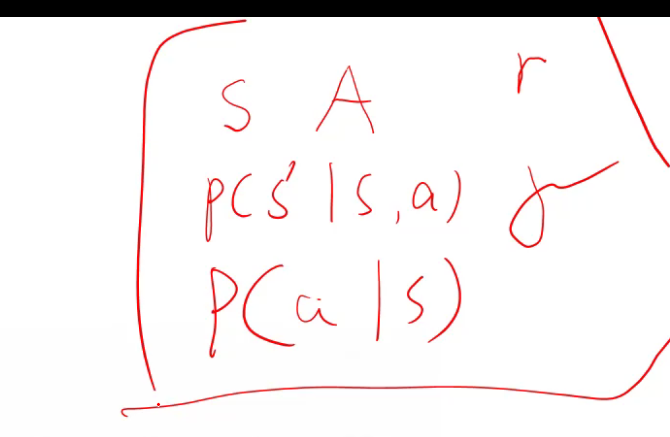 S A r
p(s' | s, a) γ
P(a | s)